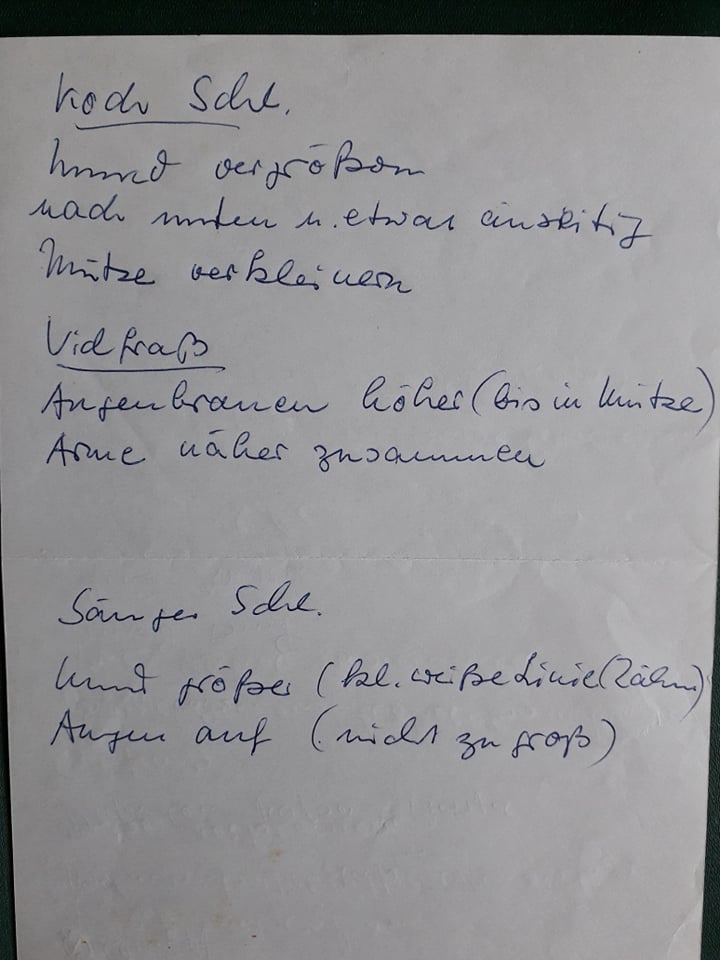 Koch Schl.
Mund vergrößern
nach unten u. etwas einseitig
Mütze verkleinern
Vielfraß
Augenbrauen höher (bis in Mütze)
Arme näher zusammen
Sänger Schl.
Mund größer (kl. weiße Linie (Zähne)
Augen auf (nicht zu groß)